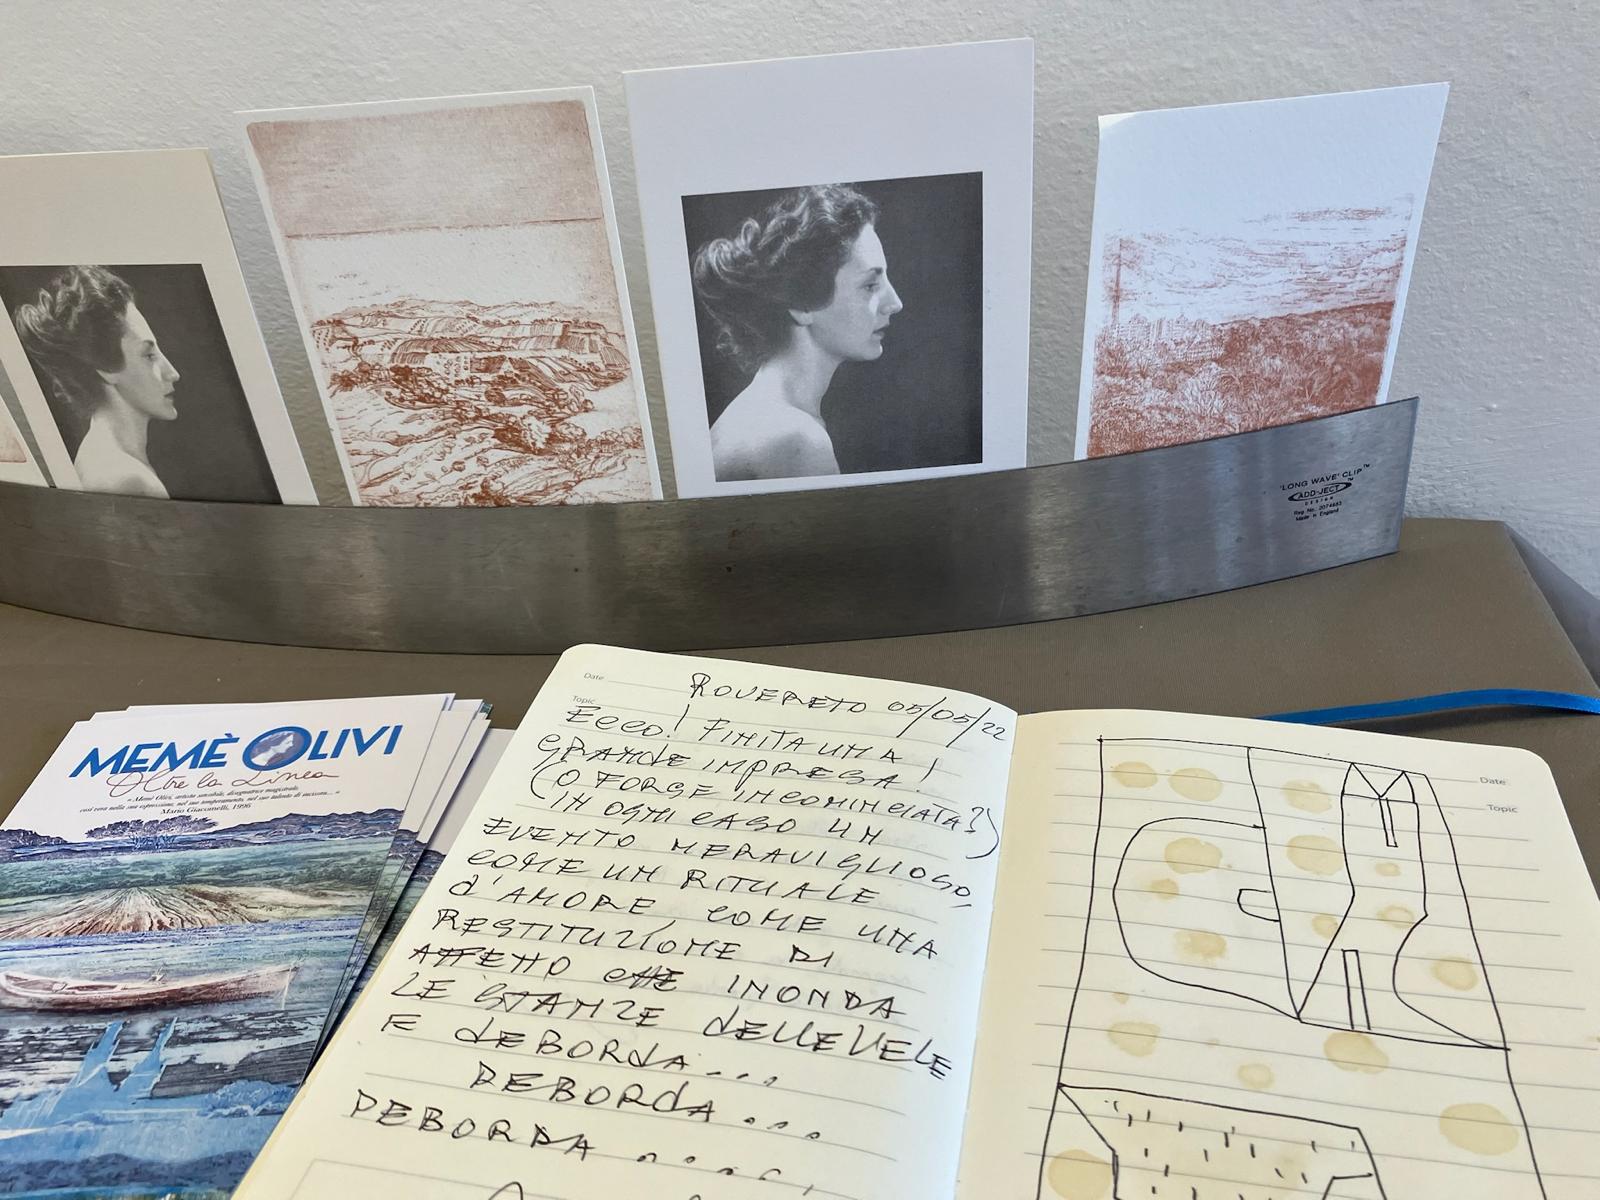 'LONG WAVE' CLIP™
ADD-JECT™
DESIGN
Reg. No. 2074883
Made in England
MEMÈ OLIVI
Oltre la Linea
« Memè Olivi, artista sensibile, disegnatrice magistrale,
così vera nella sua espressione, nel suo temperamento, nel suo talento di incisora... »
Mario Giacomelli, 1996
Date
ROVERETO 05/05/22
Topic
Ecco! FINITA UNA
GRANDE IMPRESA!
(O FORSE INCOMINCIATA?)
IN OGNI CASO UN
EVENTO MERAVIGLIOSO,
COME UN RITUALE
d'AMORE COME UNA
RESTITUZIONE DI
CHE INONDA
LE STANZE DELLE VELE
E dEBORdA...
DEBORdA...
DEBORDA.....
Date
Topic